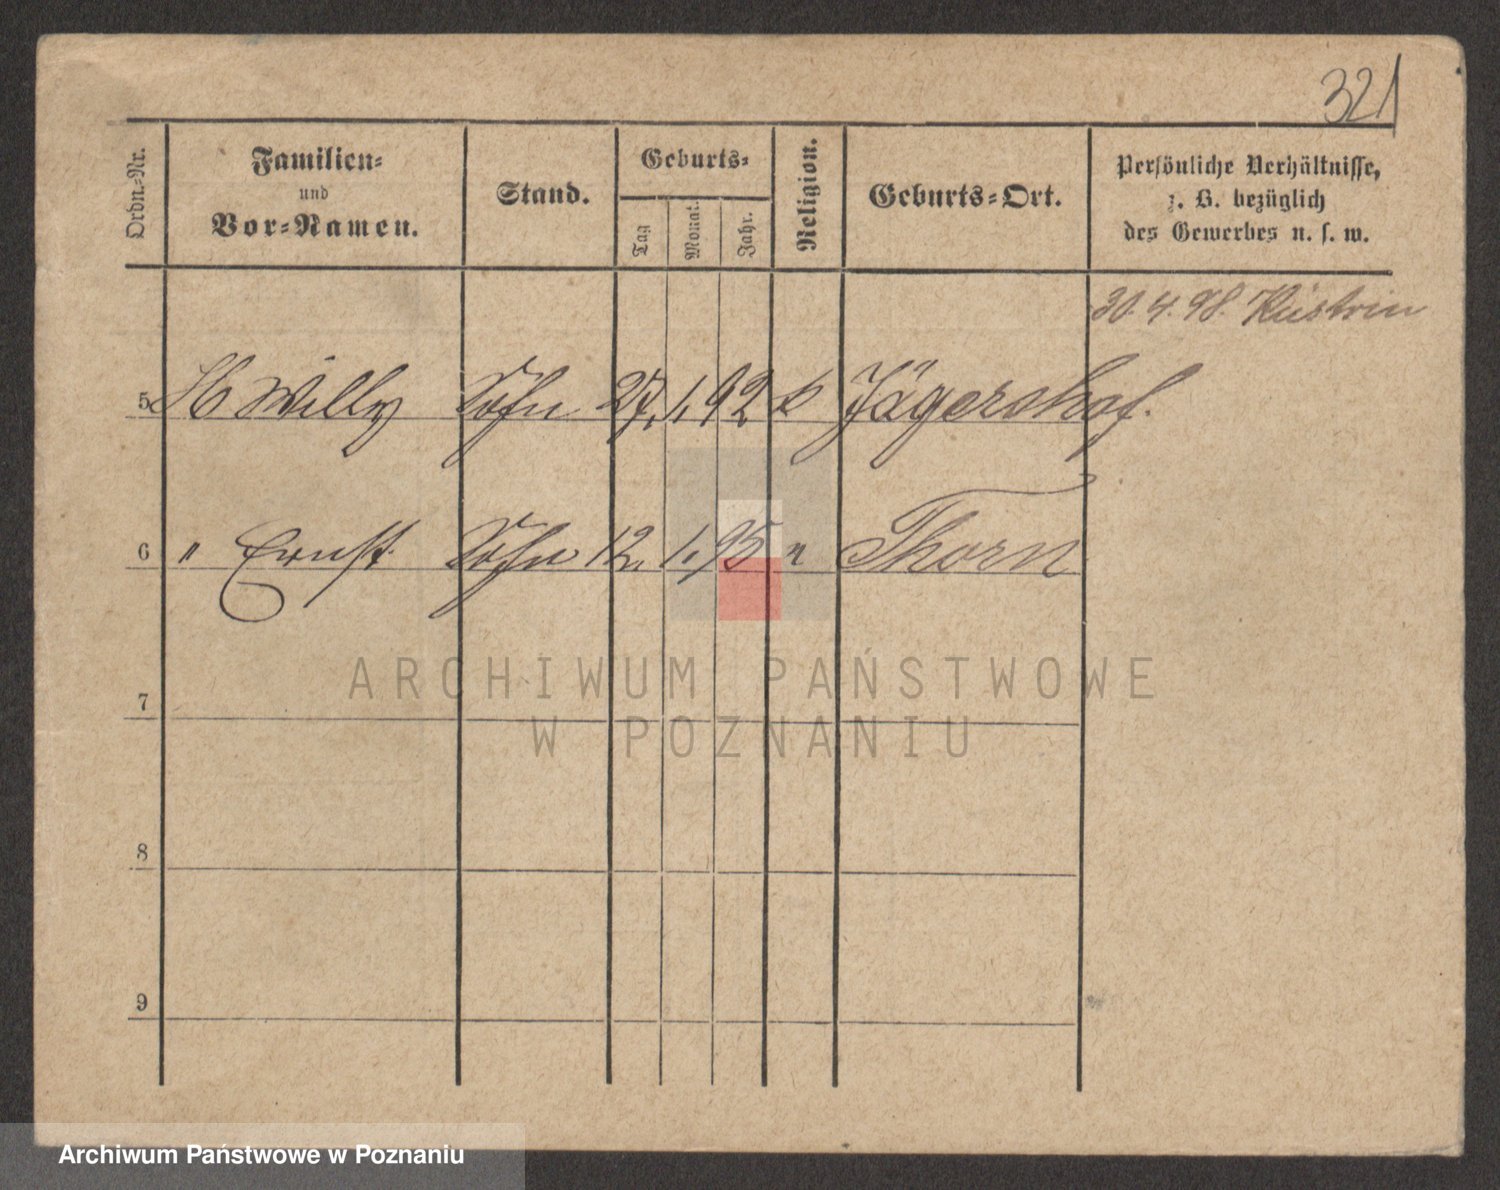 321
Ordn.-Nr.
Familien-
und
Vor-Namen.
Stand.
Geburts-
Tag
Monat.
Jahr.
Religion.
Geburts-Ort.
Persönliche Verhältnisse,
z. B. bezüglich
des Gewerbes u. s. w.
30.4.98. Küstrin
5 Willy Sohn 27. 1. 92 Jägershof.
6 " Ernst Sohn 12. 1. 95 " Thorn
7
8
9
ARCHIWUM PAŃSTWOWE
W POZNANIU
Archiwum Państwowe w Poznaniu